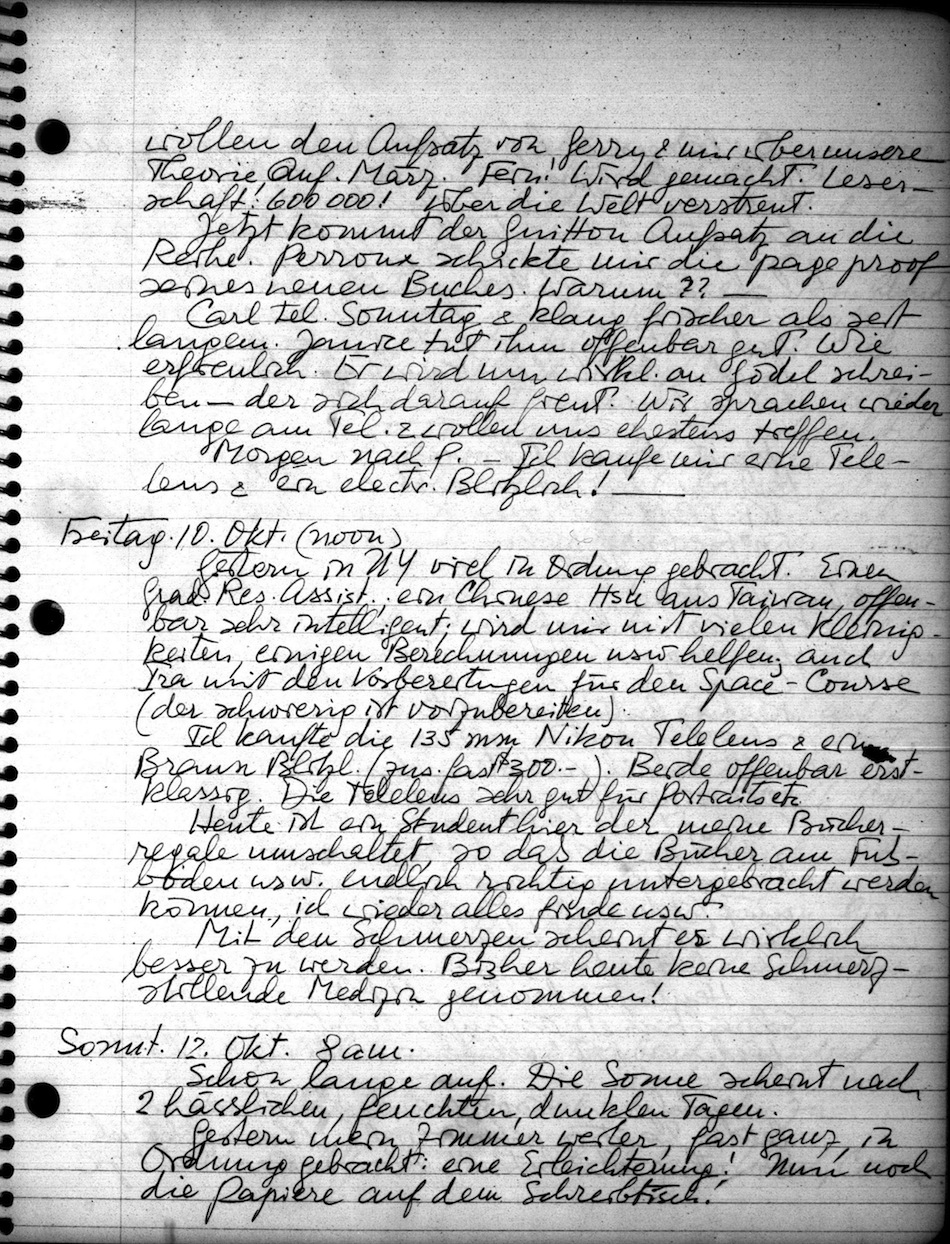 wollen den Aufsatz von Jerry & mir über unsere
Theorie! Anf. März. Fein! Wird gemacht. Leser-
schaft: 600 000! über die Welt verstreut.
Jetzt kommt der Guitton Aufsatz an die
Reihe. Perroux schickte mir die page proof
seines neuen Buches. Warum ?? —
Carl tel. Sonntag & klang frischer als seit
langem. Janice tut ihm offenbar gut. Wie
erfreulich. Er wird nun wirkl. an Gödel schrei-
ben — der sich darauf freut. Wir sprachen wieder
lange am Tel. & wollen uns ehestens treffen.
Morgen nach P. — Ich kaufe mir eine Tele-
lens & ein electr. Blitzlich! —
Freitag. 10. Okt. (noon)
Gestern in NY viel in Ordnung gebracht. Einen
Grad. Res. Assist., ein Chinese Hsu aus Taiwan, offen-
bar sehr intelligent; wird mir mit vielen Kleinig-
keiten, einigen Berechnungen usw helfen; auch
Ira mit den Vorbereitungen für den Space-Course
(der schwierig ist vorzubereiten).
Ich kaufte die 135 mm Nikon Telelens & ein
Braun Blitzl. (zus. fast $300.-). Beide offenbar erst-
klassig. Die Telelens sehr gut für Portraits etc.
Heute ist ein Student hier der meine Bücher-
regale umschaltet, so daß die Bücher am Fuß-
böden usw. endlich richtig untergebracht werden
können, ich wieder alles finde usw.
Mit den Schmerzen scheint es wirklich
besser zu werden. Bisher heute keine Schmerz-
stillende Medizin genommen!
Sonnt. 12. Okt. 8 am.
Schon lange auf. Die Sonne scheint nach
2 hässlichen, feuchten, dunklen Tagen.
Gestern mein Zimmer weiter, fast ganz in
Ordnung gebracht: eine Erleichterung! Nun noch
die Papiere auf dem Schreibtisch!